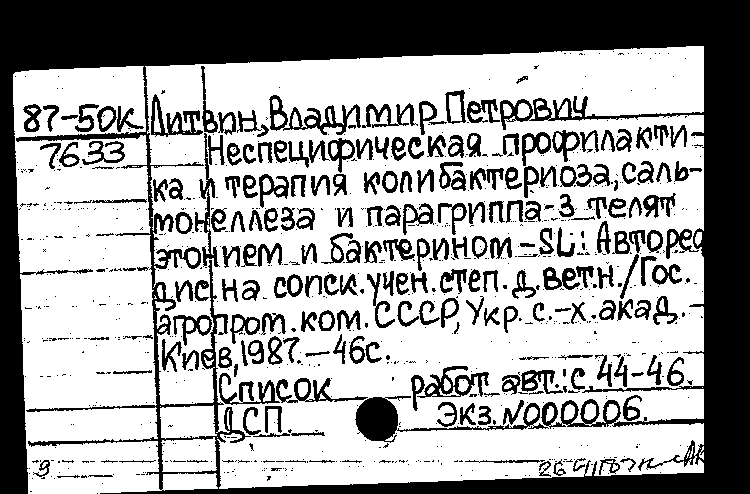 87-50К Литвин, Владимир Петрович.
7633 Неспецифическая профилакти-
ка и терапия колибактериоза, саль-
монеллеза и парагриппа-3 телят
этонием и бактерином-SL: Авторед
дис. на сопск. учен. степ. д. вет. н. / Гос.
агропром. ком. СССР, Укр. с.-х. акад. -
Киев, 1987. - 46с.
Список работ авт.: с. 44-46.
ДСП. Экз. N000006.
9